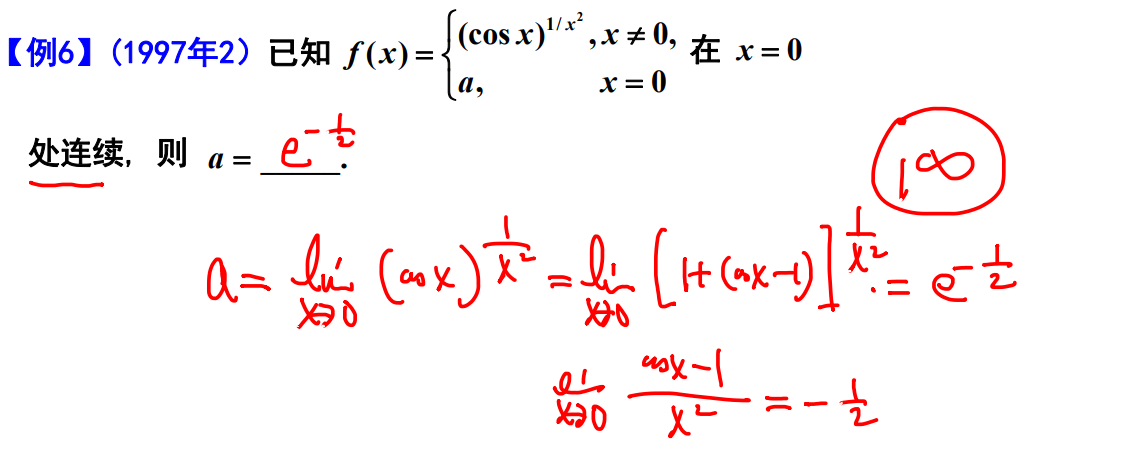 【例6】(1997年2) 已知 f(x) = { (cos x)^{1/x^2}, x ≠ 0, 在 x = 0
a, x = 0
处连续, 则 a = e^{-\frac{1}{2}}.
1^∞
a = lim_{x→0} (cos x)^{\frac{1}{x^2}} = lim_{x→0} [1+(cos x−1)]^{\frac{1}{x^2}} = e^{-\frac{1}{2}}
lim_{x→0} \frac{cos x−1}{x^2} = −\frac{1}{2}